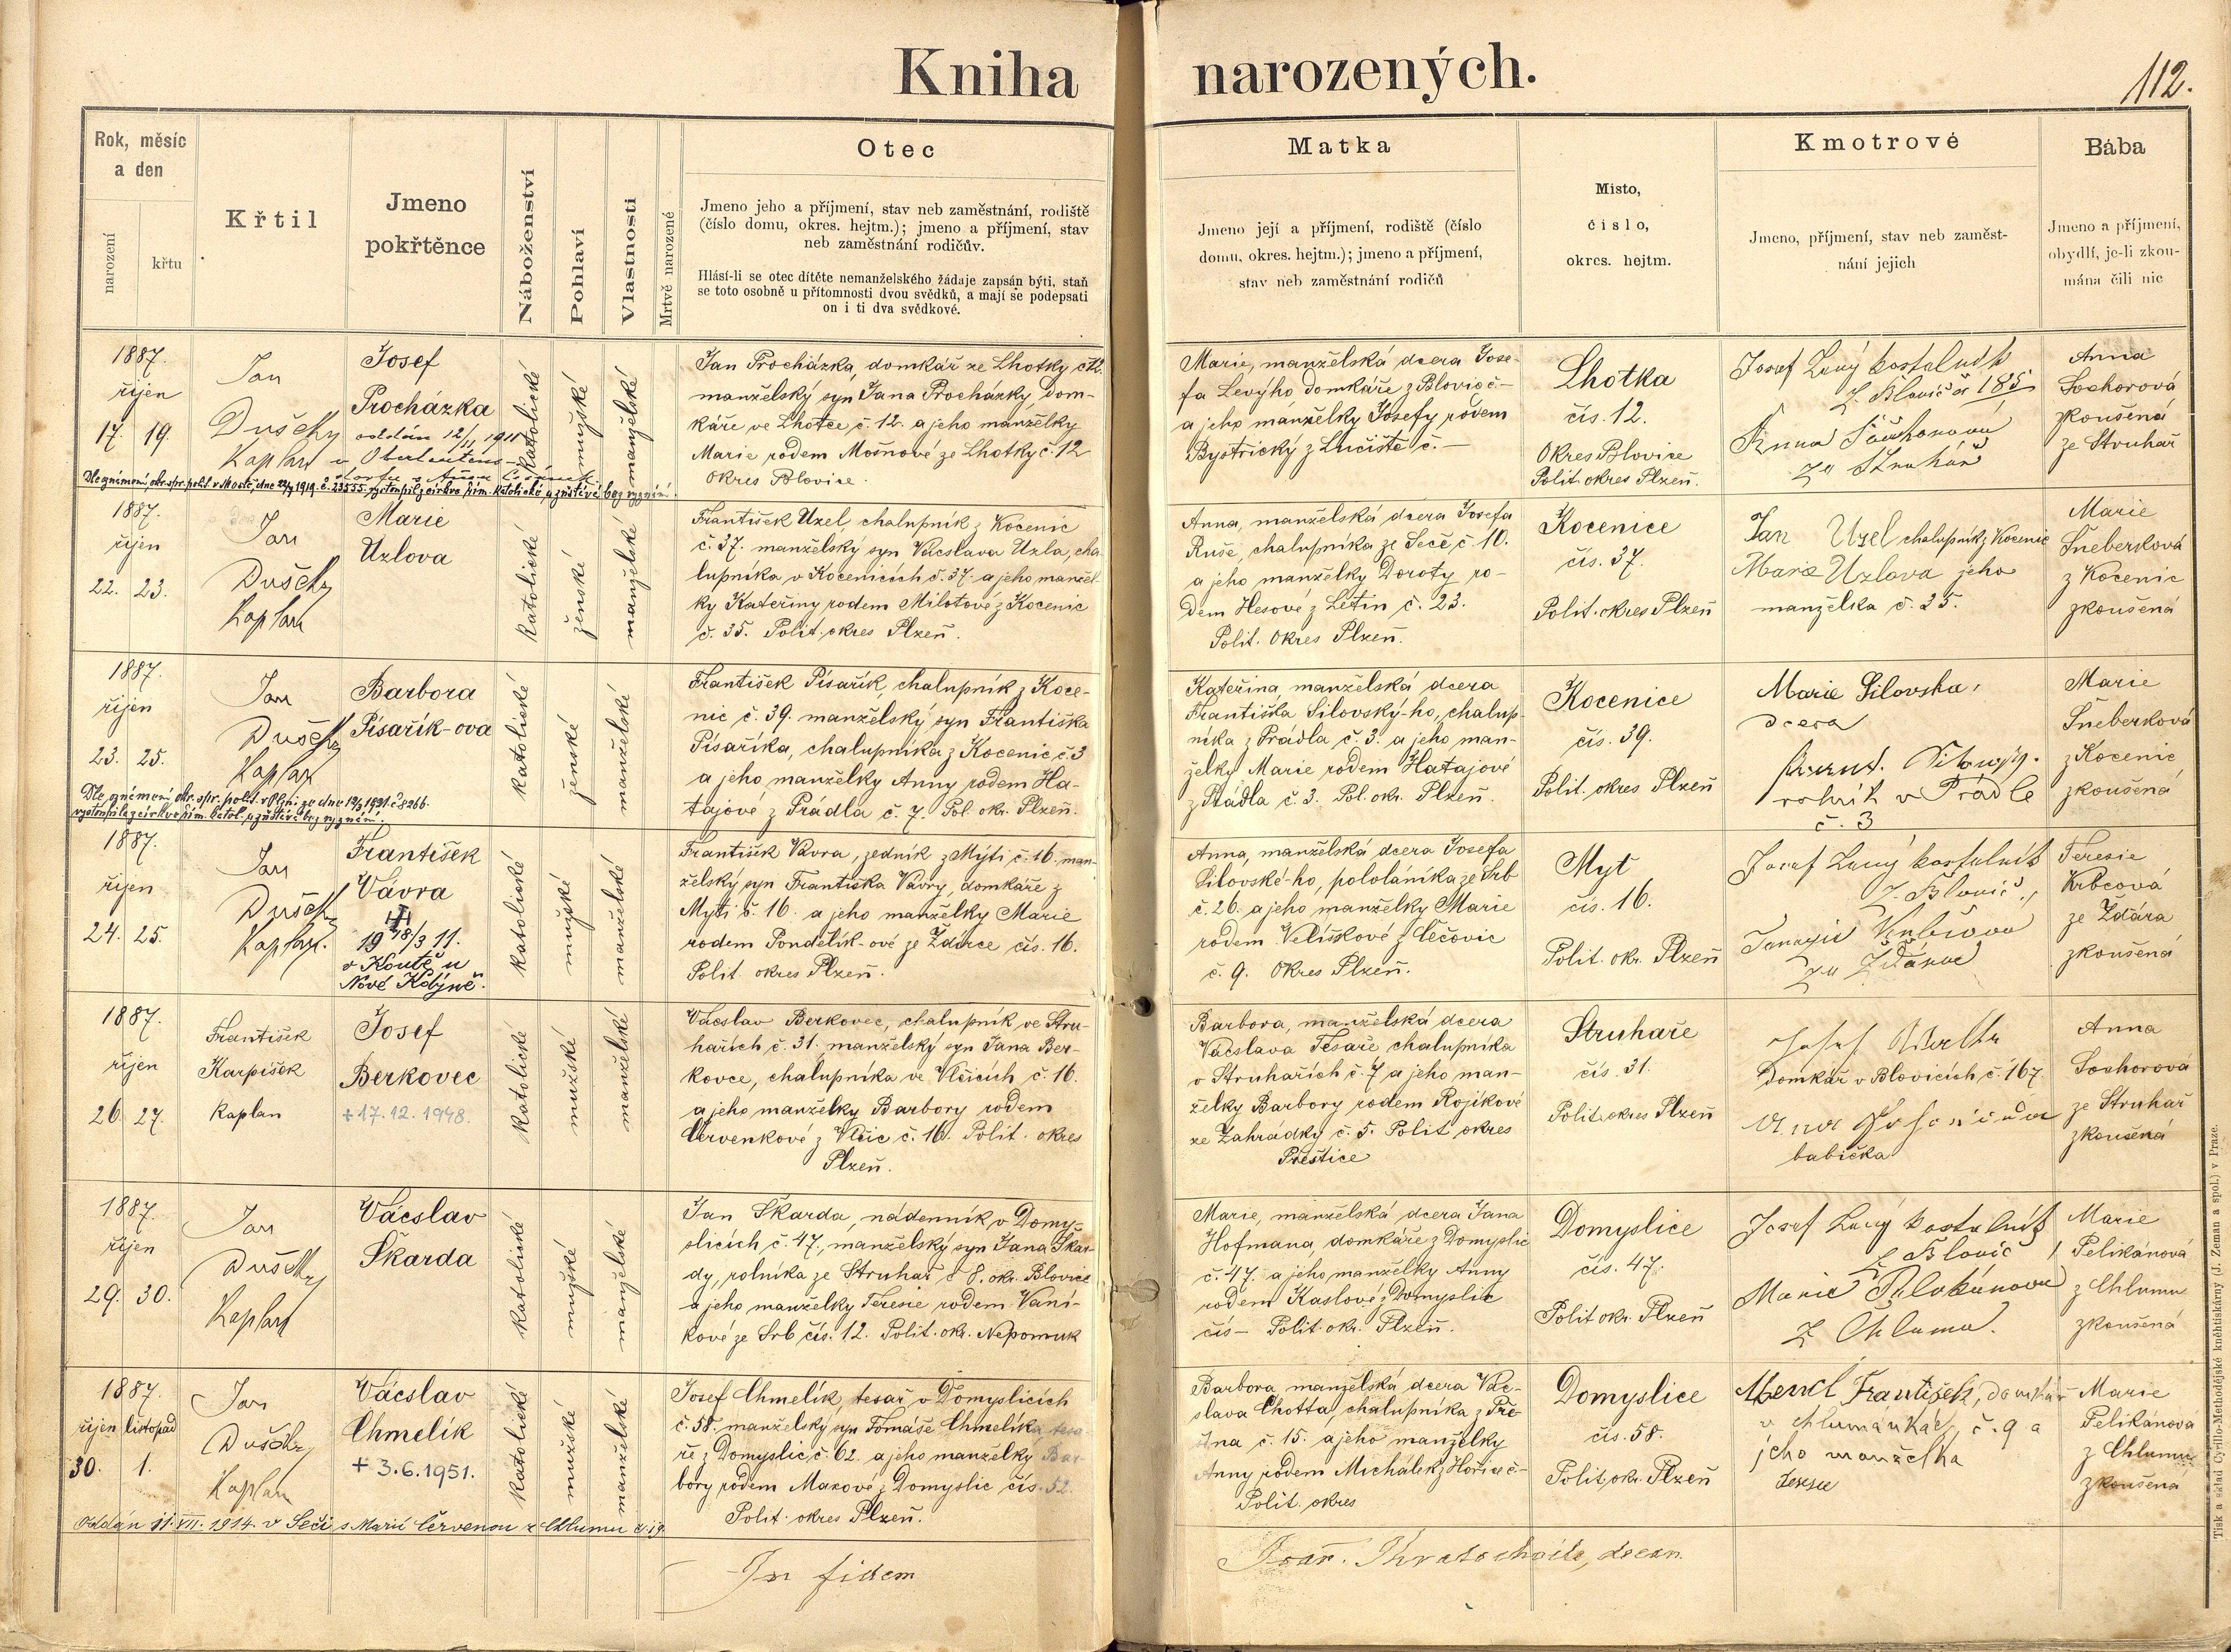 Kniha narozených.
112.
Rok, měsíc a den
narození
křtu
Křtil
Jmeno pokřtěnce
Náboženství
Pohlaví
Vlastnosti
Mrtvě narozené
Otec
Jmeno jeho a příjmení, stav neb zaměstnání, rodiště
(číslo domu, okres. hejtm.); jmeno a příjmení, stav
neb zaměstnání rodičův.
Hlásí-li se otec dítěte nemanželského žádaje zapsán býti, staň
se toto osobně u přítomnosti dvou svědků, a mají se podepsati
on i ti dva svědkové.
Matka
Jmeno její a příjmení, rodiště (číslo
domu, okres. hejtm.); jmeno a příjmení,
stav neb zaměstnání rodičů
Místo,
číslo,
okres. hejtm.
Kmotrové
Jmeno, příjmení, stav neb zaměst-
nání jejich
Bába
Jmeno a příjmení,
obydlí, je-li zkou-
mána čili nic
1887.
říjen
17. 19.
Jan
Dušek
Kaplan
Josef
Procházka
oddán 12/11 1911
katolické
mužské
manželské
Jan Procházka, domkář ze Lhotky č. 12.
manželský syn Jana Procházky, dom-
káře ve Lhotce č. 12. a jeho manželky
Marie rodem Mošnové ze Lhotky č. 12
okres Blovice.
Marie, manželská dcera Jose-
fa Levýho, domkáře z Blovic č –
a jeho manželky Josefy rodem
Bystřický z Lučiště č. –
Lhotka
čís. 12.
Okres Blovice
Polit. okres Plzeň.
Josef Levý kostelník
z Blovic č 185
Anna Sochorová
ze Struhář
Anna
Sochorová
zkoušená
ze Struhař
Dle oznámení okr. spr. polit. v Mostě, dne 22/9 1919. č. 23555. vystoupil z církve řím. katolické, a zůstává bez vyznání.
1887.
říjen
22. 23.
Jan
Dušek
Kaplan
Marie
Uzlova
katolické
ženské
manželské
František Uzel, chalupník z Kocenic
č. 37. manželský syn Vácslava Uzla, cha-
lupníka v Kocenicích č. 37. a jeho manžel-
ky Kateřiny rodem Milotové z Kocenic
č. 35. Polit. okres Plzeň.
Anna, manželská dcera Josefa
Ruše, chalupníka ze Seče, č. 10.
a jeho manželky Doroty ro-
dem Hesové z Letin č. 23.
Polit. Okres Plzeň.
Kocenice
čís. 37.
Polit. okres Plzeň
Jan Uzel chalupník z Kocenic
Marie Uzlova jeho
manželka č. 25.
Marie
Šneberková
z Kocenic
zkoušená
1887.
říjen
23. 25.
Jan
Dušek
Kaplan
Barbora
Písařík-ova
katolické
ženské
manželské
František Písařík, chalupník z Koce-
nic č. 39. manželský syn Františka
Písaříka, chalupníka z Kocenic č. 3
a jeho manželky Anny rodem Ha-
tajové z Prádla č. 7. Pol. okr. Plzeň.
Kateřina, manželská dcera
Františka Silovský-ho, chalup-
níka z Prádla č. 3. a jeho man-
želky Marie rodem Hatajové
z Prádla č. 3. Pol. okr. Plzeň.
Kocenice
čís. 39.
Polit. okres Plzeň
Marie Silovska,
dcera
rolník v Prádle
č. 3
Marie
Šneberková
z Kocenic
zkoušená
Dle oznámení okr. spr. polit. v Plzni ze dne 19/3 1921. č. 8266.
vystoupila z církve řím. katol. a zůstává bez vyznání.
1887.
říjen
24. 25.
Jan
Dušek
Kaplan.
František
Vávra
19 18/3 11.
v Koutě u
Nové Kdýně.
katolické
mužské
manželské
František Vávra, zedník z Mýti č. 16. man-
želský syn Františka Vávry, domkáře z
Mýti č. 16. a jeho manželky Marie
rodem Pondělík-ové ze Ždírce čís. 16.
Polit. okres Plzeň.
Anna, manželská dcera Josefa
Silovské-ho, pololáníka ze Srb
č. 26. a jeho manželky Marie
rodem Velíškové z Čečovic
č. 9. Okres Plzeň.
Myt
čís. 16.
Polit. okr. Plzeň
Josef Levý kostelník
z Blovic,
Terezie Krbcová
ze Žďáru
Teresie
Krbcová
ze Ždára
zkoušená
1887.
říjen
26. 27.
František
Karpíšek
kaplan
Josef
Berkovec
+ 17. 12. 1948.
katolické
mužské
manželské
Vácslav Berkovec, chalupník ve Stru-
hařích č. 31. manželský syn Jana Ber-
kovce, chalupníka ve Vlčicích č. 16.
a jeho manželky Barbory rodem
Červenkové z Vlčic č. 16. Polit. okres
Plzeň.
Barbora, manželská dcera
Vácslava Tesaře chalupníka
v Struhařích č. 7 a jeho man-
želky Barbory rodem Rojíkové
ze Zahrádky č. 5. Polit okres
Přeštice
Struhaře
čís. 31.
Polit. okres Plzeň
Domkář v Blovicích č. 167.
babička
Anna
Sochorová
ze Struhař
zkoušená
1887.
říjen
29. 30.
Jan
Dušek
Kaplan
Vácslav
Škarda
katolické
mužské
manželské
Jan Škarda, nádenník v Domy-
slicích č. 47., manželský syn Jana Škar-
dy, rolníka ze Struhař č 8. okr. Blovice
a jeho manželky Teresie rodem Vaní-
kové ze Srb čís. 12. Polit. okr. Nepomuk
Marie, manželská dcera Jana
Hofmana, domkáře z Domyslic
č. 47. a jeho manželky Anny
rodem Kaslové z Domyslic
čís – Polit. okr. Plzeň.
Domyslice
čís. 47.
Polit okr. Plzeň
Josef Levý kostelník
z Blovic
Marie Pelikánová
z Chlumu.
Marie
Pelikánová
z Chlumu
zkoušená
1887.
říjen listopad
30. 1.
Jan
Dušek
Kaplan
Vácslav
Chmelík
+ 3. 6. 1951.
katolické
mužské
manželské
Josef Chmelík, tesař v Domyslicích
č. 58. manželský syn Tomáše Chmelíka tesa-
ře z Domyslic, č. 62. a jeho manželky Bar-
bory rodem Maxové z Domyslic čís. 52.
Polit. okres Plzeň.
Barbora, manželská dcera Vác-
slava Chotta, chalupníka z Pře-
šína č. 15. a jeho manželky
Anny rodem Michálek z Hořic č –
Polit. okres
Domyslice
čís. 58.
Polit. okr. Plzeň
Mencl František, domkář
v Chlumánkách, č. 9 a
jeho manželka
Marie
Pelikánová
z Chlumu,
zkoušená
Oddán 11. VII. 1914. v Seči s Marií Červenou z Chlumu č. 19.
In fidem
decan.
Tisk a sklad Cyrillo-Methodějské kněhtiskárny (J. Zeman a spol.) v Praze.